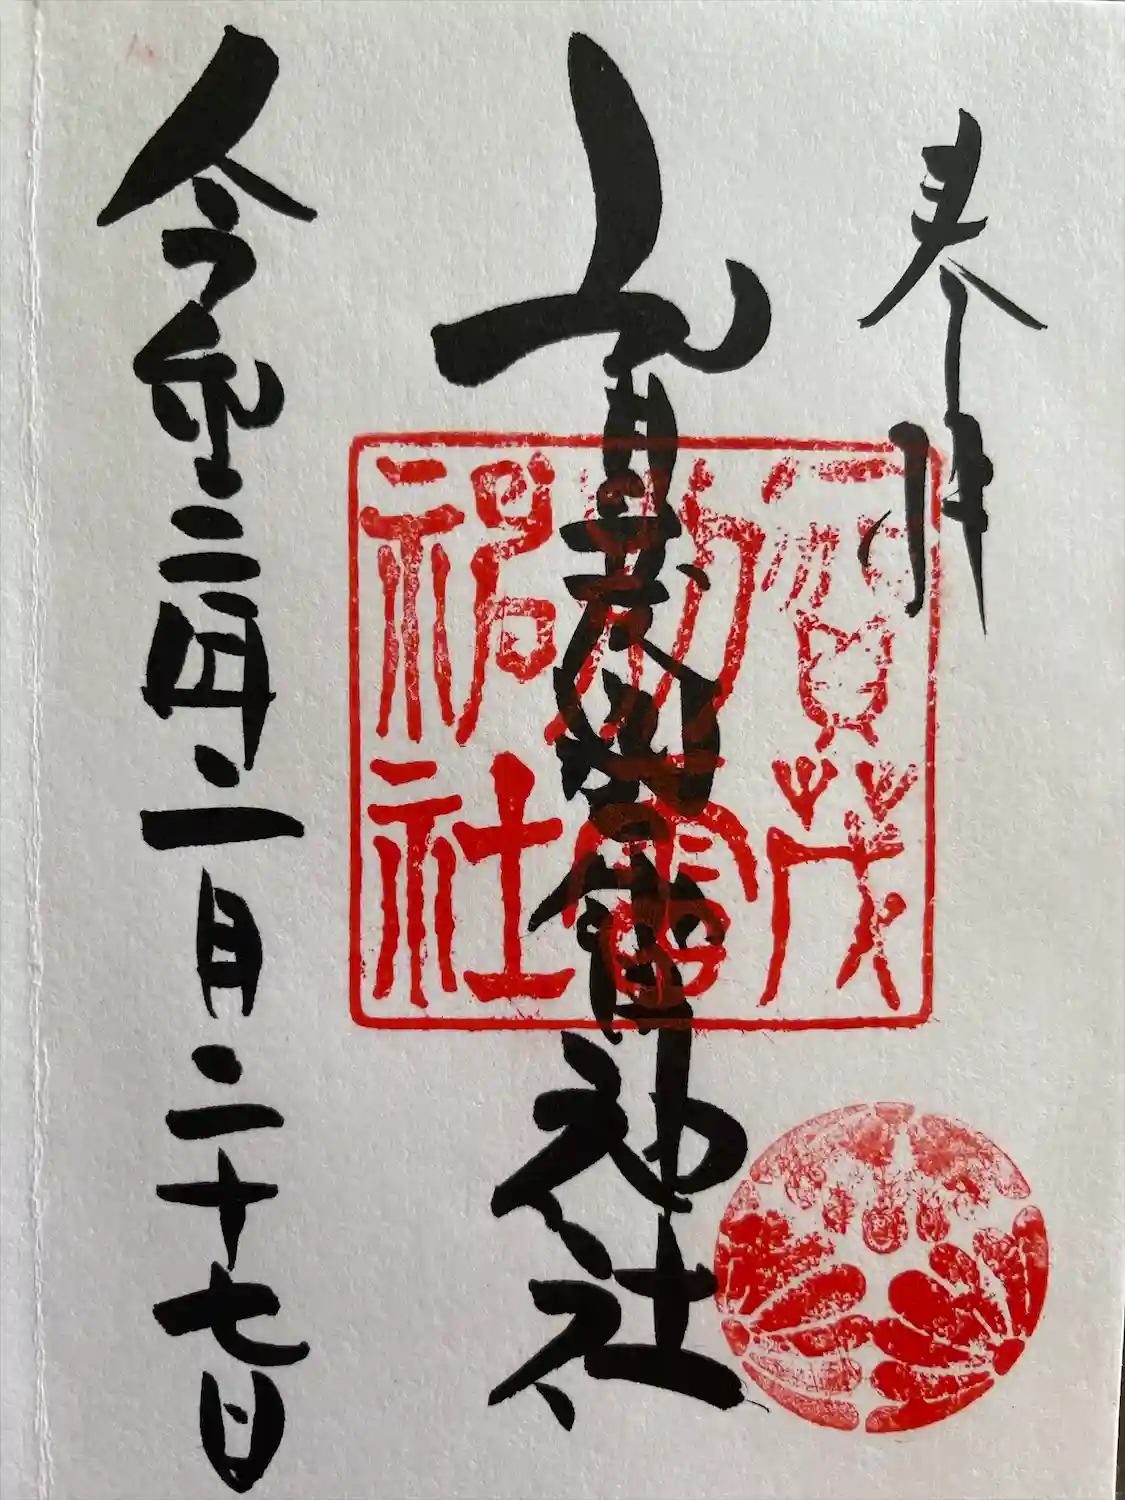 奉拝
賀茂別雷神社
令和三年二月二十七日
賀茂
別雷
神社